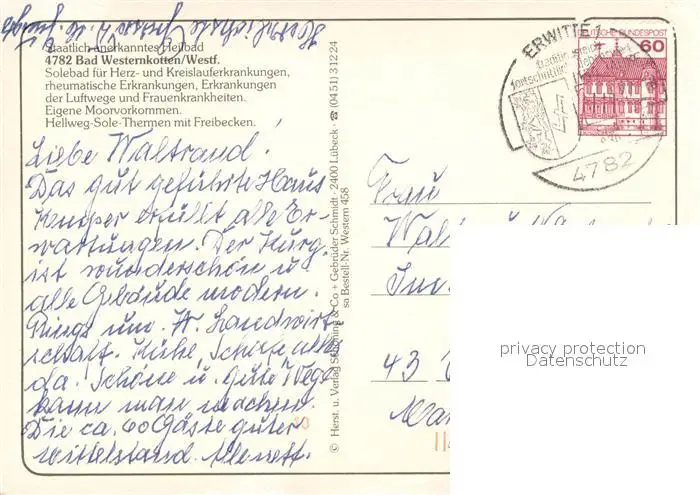 Staatlich anerkanntes Heilbad
4782 Bad Westernkotten/Westf.
Solebad für Herz- und Kreislauferkrankungen,
rheumatische Erkrankungen, Erkrankungen
der Luftwege und Frauenkrankheiten.
Eigene Moorvorkommen.
Hellweg-Sole-Thermen mit Freibecken.
Liebe Waltraud!
Das gut geführte Haus
Kemper erfüllt alle Er-
wartungen. Der Kurg.
ist wunderschön u
alle Gebäude modern.
Rings um. W. Landwirt-
schaft. Kühe, Schafe alles
da. Schöne u. gute Wege
kann man machen.
Die ca. 60 Gäste guter
Mittelstand. Alle nett.
Herzlichste
© Herst. u. Verlag Schöning & Co + Gebrüder Schmidt · 2400 Lübeck · ☎ (0451) 31224
sa Bestell-Nr. Western 458
ERWITTE 1
4782
DEUTSCHE BUNDESPOST
60
Frau
43
privacy protection
Datenschutz